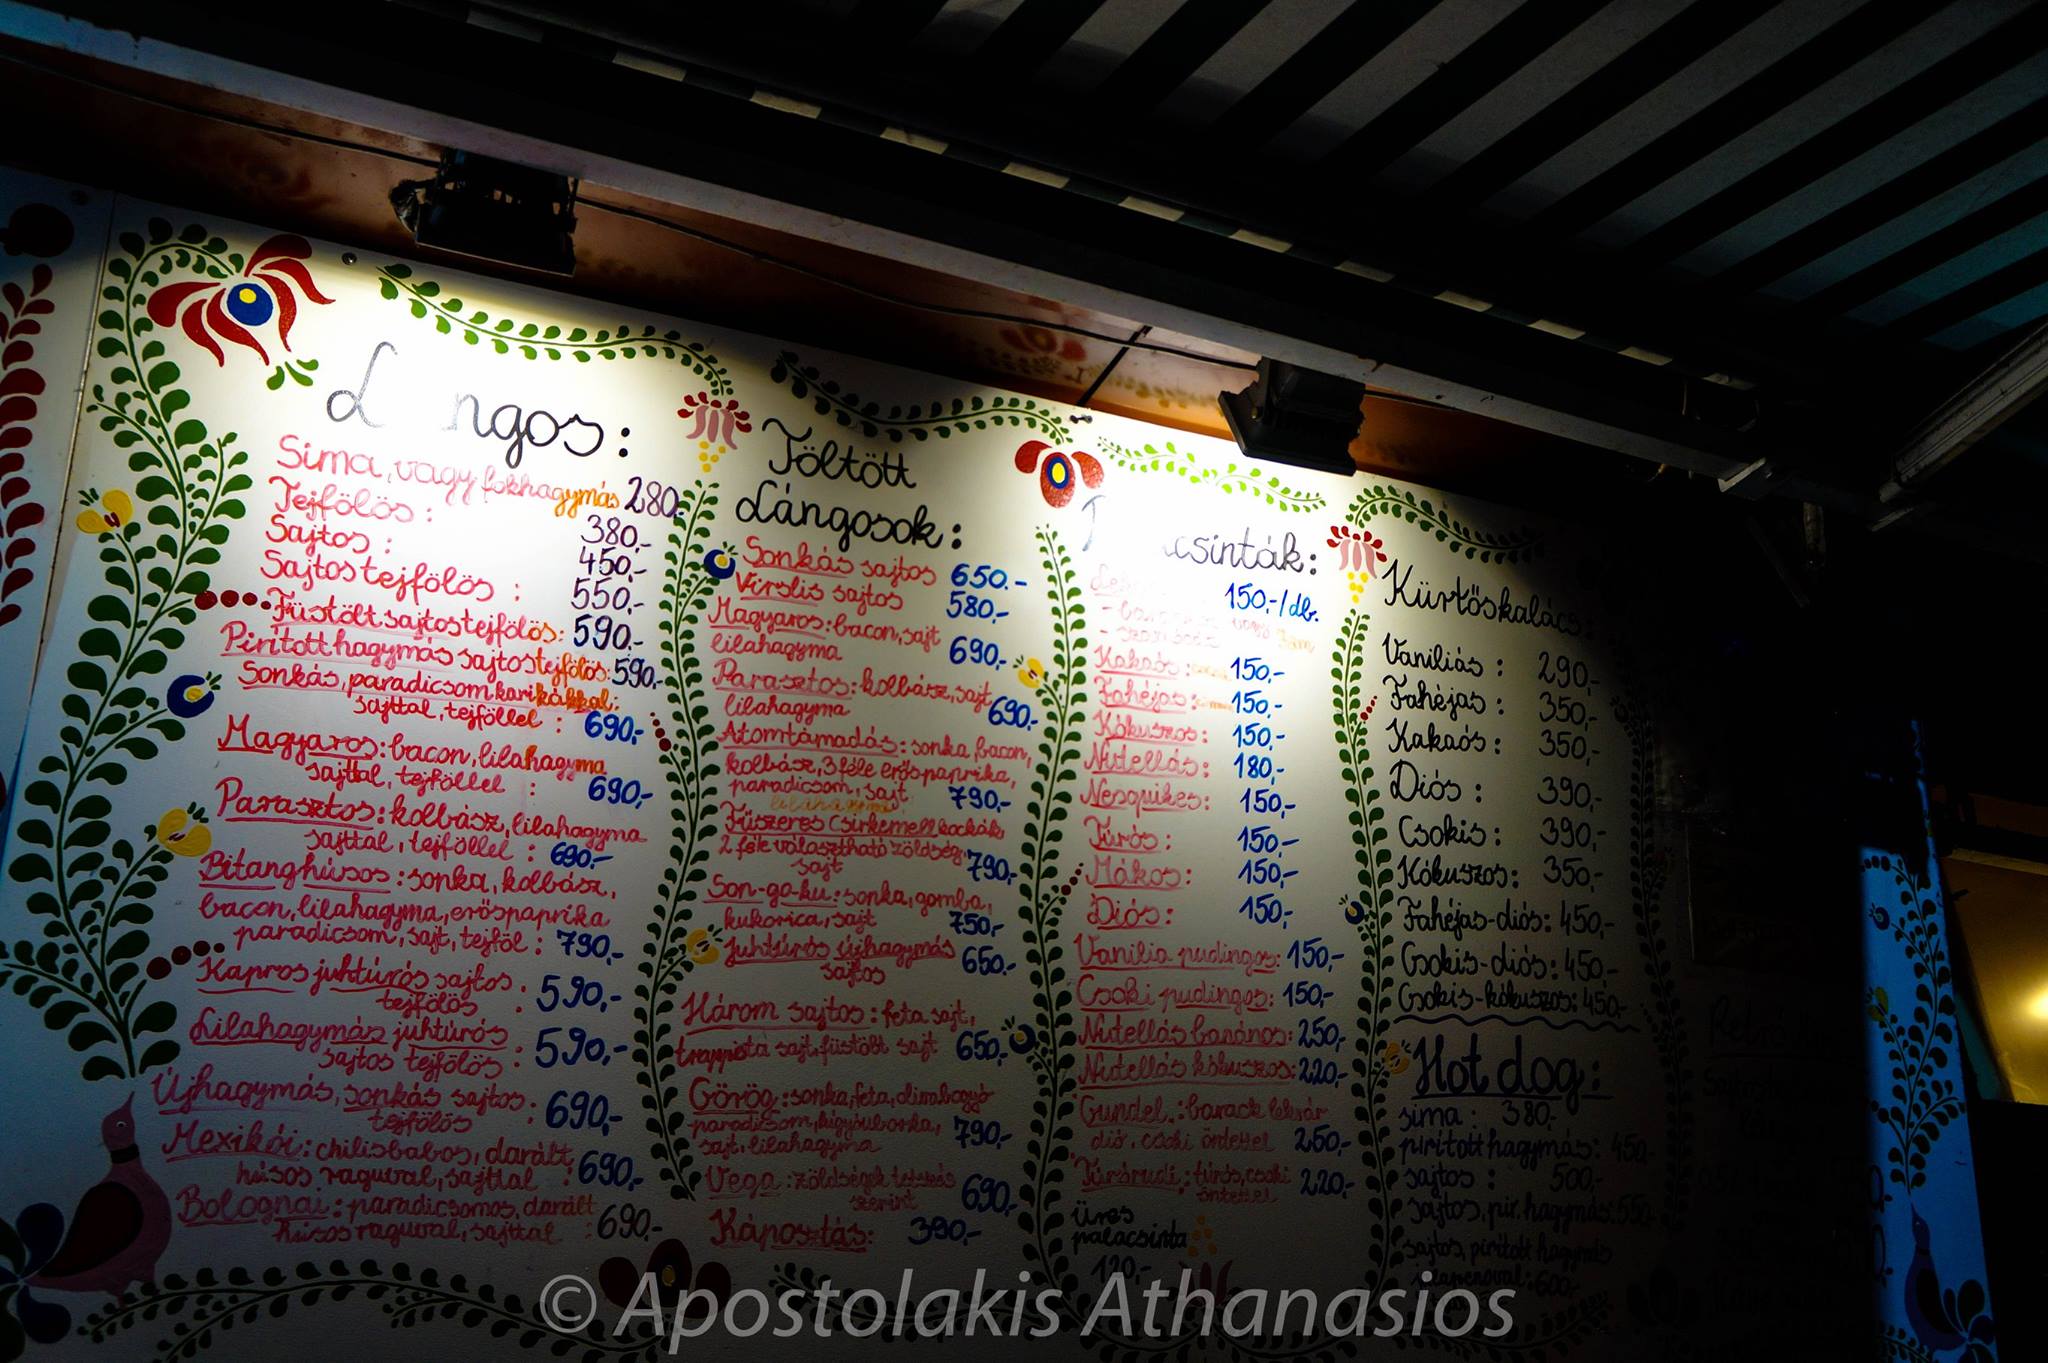 L ngos:
Sima, vagy fokhagymás 280,-
Tejfölös: 380,-
Sajtos: 450,-
Sajtos tejfölös: 550,-
Füstölt sajtos tejfölös: 590,-
Pirított hagymás sajtos tejfölös: 590,-
Sonkás, paradicsom karikákkal,
sajttal, tejföllel: 690,-
Magyaros: bacon, lilahagyma
sajttal, tejföllel: 690,-
Parasztos: kolbász, lilahagyma
sajttal, tejföllel: 690,-
Bitanghúsos: sonka, kolbász,
bacon, lilahagyma, erőspaprika
paradicsom, sajt, tejföl: 790,-
Kapros juhtúrós sajtos
tejfölös: 590,-
Lilahagymás juhtúrós
sajtos tejfölös: 590,-
Újhagymás, sonkás sajtos
tejfölös: 690,-
Mexikói: chilisbabos, darált
húsos raguval, sajttal: 690,-
Bolognai: paradicsomos, darált
húsos raguval, sajttal: 690,-
Töltött
Lángosok:
Sonkás sajtos 650.-
Virslis sajtos 580.-
Magyaros: bacon, sajt
lilahagyma 690,-
Parasztos: kolbász, sajt
lilahagyma 690,-
Atomtámadás: sonka, bacon,
kolbász, 3 féle erőspaprika,
paradicsom, sajt 790,-
lilahagyma
Fűszeres csirkemell kockák
2 féle választható zöldség
sajt 790,-
Son-go-ku: sonka, gomba,
kukorica, sajt 750,-
Juhtúrós újhagymás
sajtos 650,-
Három sajtos: feta sajt,
trappista sajt, füstölt sajt 650,-
Görög: sonka, feta, olivabogyó
paradicsom, kígyóuborka,
sajt, lilahagyma 790,-
Vega: zöldségek tetszés
szerint 690,-
Káposztás: 390,-
csinták:
150,-/db.
Kakaós: 150,-
Fahéjas: 150,-
Kókuszos: 150,-
Nutellás: 180,-
Nesquikes: 150,-
Túrós: 150,-
Mákos: 150,-
Diós: 150,-
Vanilia pudingos: 150,-
Csoki pudingos: 150,-
Nutellás banános: 250,-
Nutellás kókuszos: 220,-
Gundel: barack lekvár
dió, csoki öntettel 250,-
Túrórudi: túrós, csoki
öntettel 220,-
üres
palacsinta
120,-
Kürtőskalács:
Vaniliás: 290,-
Fahéjas: 350,-
Kakaós: 350,-
Diós: 390,-
Csokis: 390,-
Kókuszos: 350,-
Fahéjas-diós: 450,-
Csokis-diós: 450,-
Csokis-kókuszos: 450,-
Hot dog:
sima: 380.-
pirított hagymás: 450,-
sajtos: 500,-
sajtos, pir. hagymás: 550,-
sajtos, pirított hagymás
600,-
© Apostolakis Athanasios